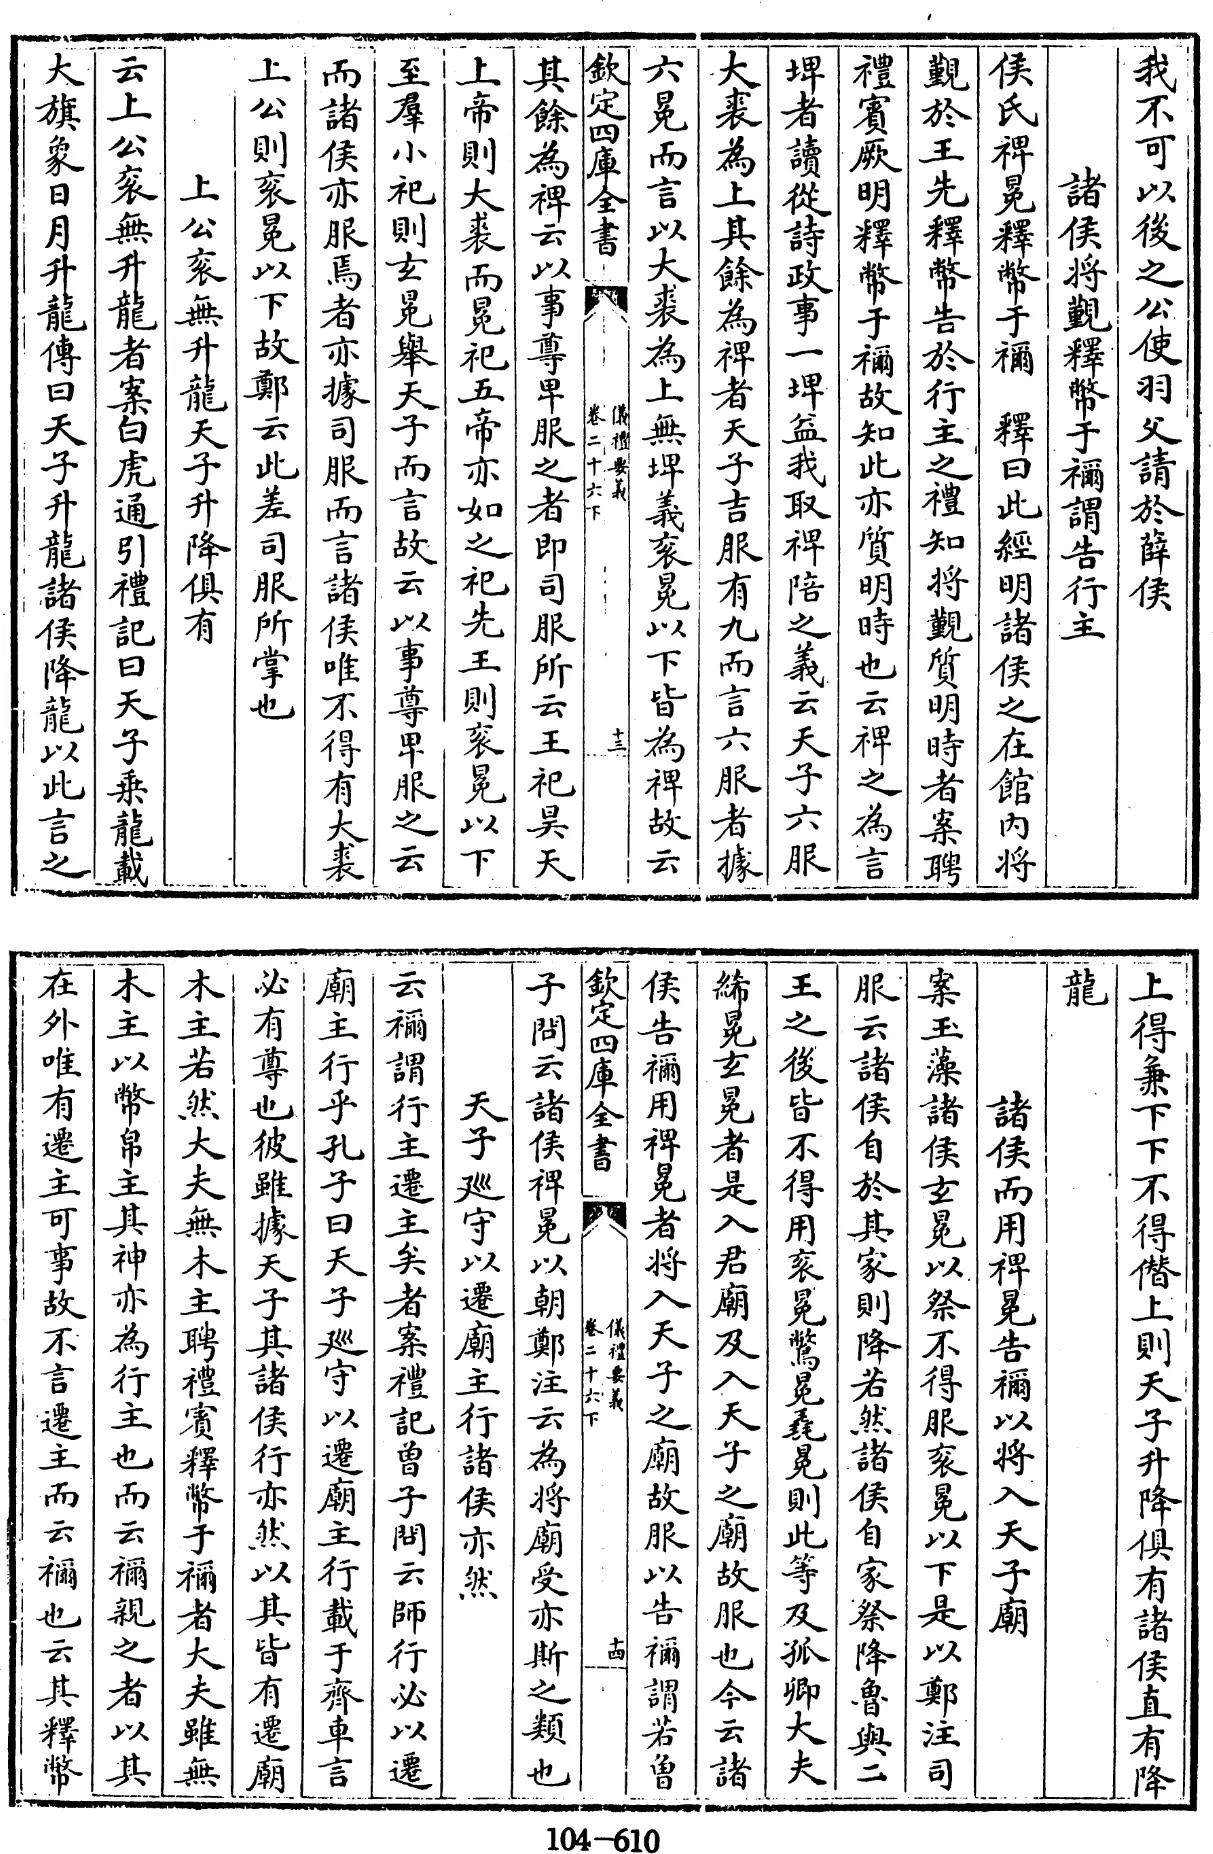 我不可以後之公使羽父請於薛侯
諸侯將覲釋幣于禰謂告行主
侯氏裨冕釋幣于禰　釋曰此經明諸侯之在館內將
覲於王先釋幣告於行主之禮知將覲質明時者案聘
禮賓厥明釋幣于禰故知此亦質明時也云裨之為言
埤者讀從詩政事一埤益我取裨陪之義云天子六服
大裘為上其餘為裨者天子吉服有九而言六服者據
六冕而言以大裘為上無埤義衮冕以下皆為裨故云
欽定四庫全書
儀禮要義
卷二十六下
十三
其餘為裨云以事尊卑服之者即司服所云王祀昊天
上帝則大裘而冕祀五帝亦如之祀先王則衮冕以下
至羣小祀則玄冕舉天子而言故云以事尊卑服之云
而諸侯亦服焉者亦據司服而言諸侯唯不得有大裘
上公則衮冕以下故鄭云此差司服所掌也
上公衮無升龍天子升降俱有
云上公衮無升龍者案白虎通引禮記曰天子乗龍載
大旗象日月升龍傳曰天子升龍諸侯降龍以此言之
上得兼下下不得僭上則天子升降俱有諸侯直有降
龍
諸侯而用裨冕告禰以將入天子廟
案玉藻諸侯玄冕以祭不得服衮冕以下是以鄭注司
服云諸侯自於其家則降若然諸侯自家祭降魯與二
王之後皆不得用衮冕鷩冕毳冕則此等及孤卿大夫
絺冕玄冕者是入君廟及入天子之廟故服也今云諸
侯告禰用裨冕者將入天子之廟故服以告禰謂若曽
欽定四庫全書
儀禮要義
卷二十六下
十四
子問云諸侯裨冕以朝鄭注云為將廟受亦斯之類也
天子廵守以遷廟主行諸侯亦然
云禰謂行主遷主矣者案禮記曽子問云師行必以遷
廟主行乎孔子曰天子廵守以遷廟主行載于齊車言
必有尊也彼雖據天子其諸侯行亦然以其皆有遷廟
木主若然大夫無木主聘禮賓釋幣于禰者大夫雖無
木主以幣帛主其神亦為行主也而云禰親之者以其
在外唯有遷主可事故不言遷主而云禰也云其釋幣
104-610